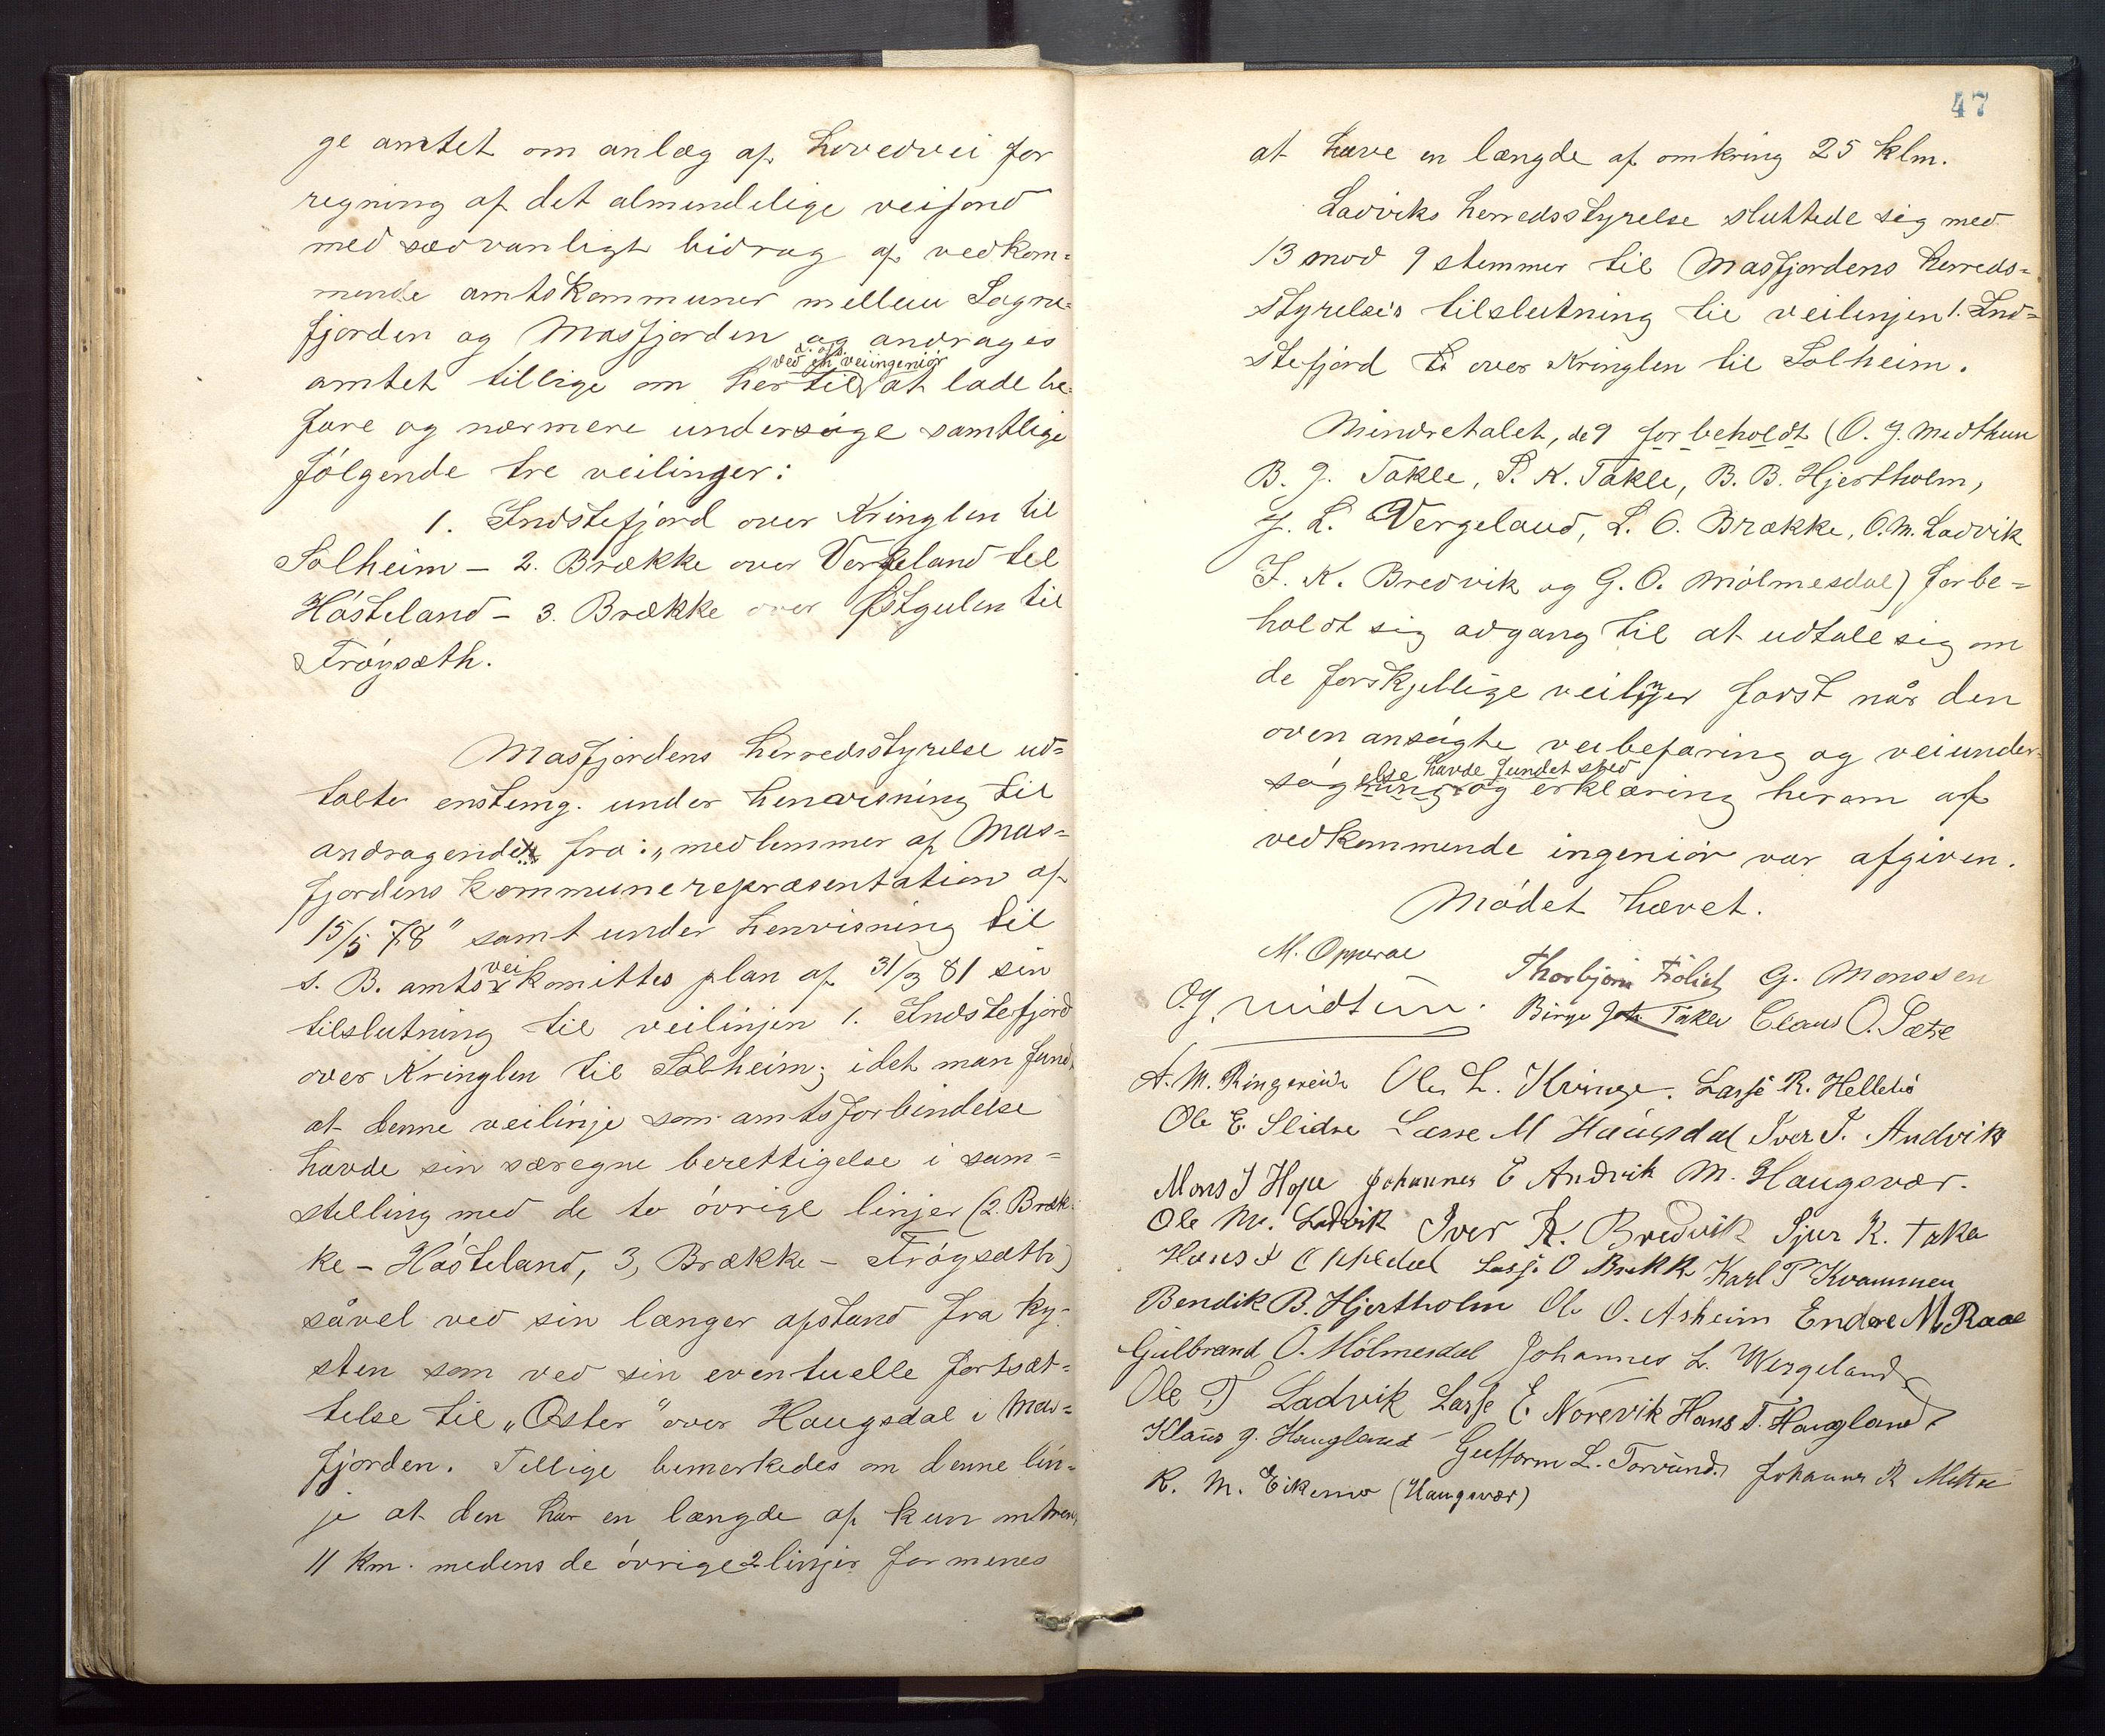 ge amtet om anlæg af hovedvei for
regning af det almindelige veifond
med sædvanligt bidrag af vedkom=
mende amtskommuner mellem Sogne=
fjorden og Masfjorden og andrages
ved en veiingeniør
amtet tillige om hertil at lade be=
fare og nærmere undersøge samtlige
følgende tre veilinjer:
1. Indstefjord over Kringlen til
Solheim – 2. Brække over Vergeland til
Håsteland – 3. Brække over Østgulen til
Frøysæth.
Masfjordens herredsstyrelse ud=
talte enstemg. under henvisning til
andragendet fra: „medlemmer af Mas=
fjordens kommunerepræsentation af
15/5 78" samt under henvisning til
vei
s. B. amts komittes plan af 31/3 81 sin
tilslutning til veilinjen 1. Indstefjord
over Kringlen til Solheim; idet man fund
at denne veilinje som amtsforbindelse
havde sin særegne berettigelse i sam=
stilling med de to øvrige linjer (2. Bræk=
ke – Håsteland, 3, Brække – Frøysæth)
såvel ved sin længer afstand fra ky=
sten som ved sin eventuelle fortsæt=
telse til „Oster" over Haugsdal i Mas=
fjorden. Tillige bemerkedes om denne lin=
je at den har en længde af kun omtren
11 km. medens de øvrige 2 linjer formenes
47
at have en længde af omkring 25 klm.
Ladviks herredsstyrelse sluttede sig med
13 mod 9 stemmer til Masfjordens herreds=
styrelses tilslutning til veilinjen 1. Ind=
stefjord over Kringlen til Solheim.
Mindretalet, de 9 forbeholdt (O. J. Midthun
B. J. Takle, S. K. Takle, B. B. Hjertholm,
J. L. Vergeland, L. O. Brække, O. M. Ladvik
I. K. Bredvik og G. O. Mølmesdal) forbe=
holdt sig adgang til at udtale sig om
de forskjellige veilinjer først når den
oven ansøgte veibefaring og veiunder=
else havde fundet sted
søg og erklæring herom af
vedkommende ingeniør var afgiven.
Mødet hævet.
M. Opperae Thorbjørn Frölich G. Monssen
O. J. Midtun. Birge Joh. Takle Claus O. Sætre
A. M. Ringereide Ole L. Kringe. Lasse R. Hellebö
Ole E. Slidre Lasse M Haugsdal Iver I. Andvik
Mons J Hope Johannes E Andvik M. Haugsvær.
Ole M. Ladvik Iver K. Bredvik Sjur K. Takle
Hans Lasse O Brekke Karl P Kvammen
Bendik B. Hjertholm Ole O. Asheim Endre M. Raae
Gulbrand O. Mölmesdal Johannes L. Wergeland
Ole T Ladvik Lasse E. Norevik Hans T. Haugland
Klaus J. Haugland Guttorm L. Torvund. Johannes R
K. M. Eikemo (Haugsvær)